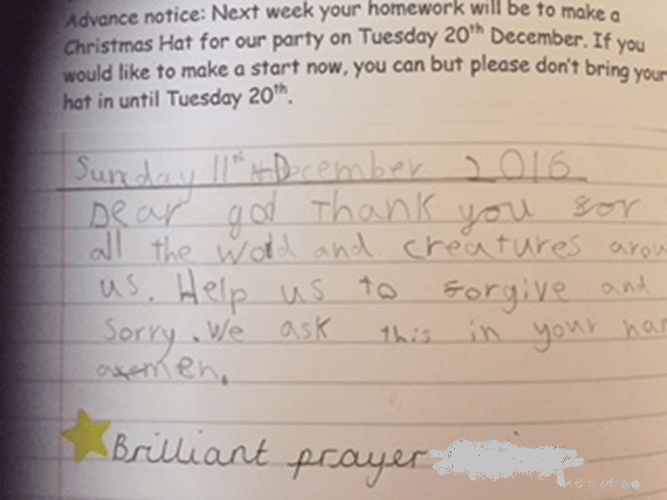 Advance notice: Next week your homework will be to make a
Christmas Hat for our party on Tuesday 20th December. If you
would like to make a start now, you can but please don't bring your
hat in until Tuesday 20th.
Sunday 11th December 2016
Dear god Thank you for
all the world and creatures arou
us. Help us to forgive and
Sorry. We ask this in your nam
amen.
Brilliant prayer